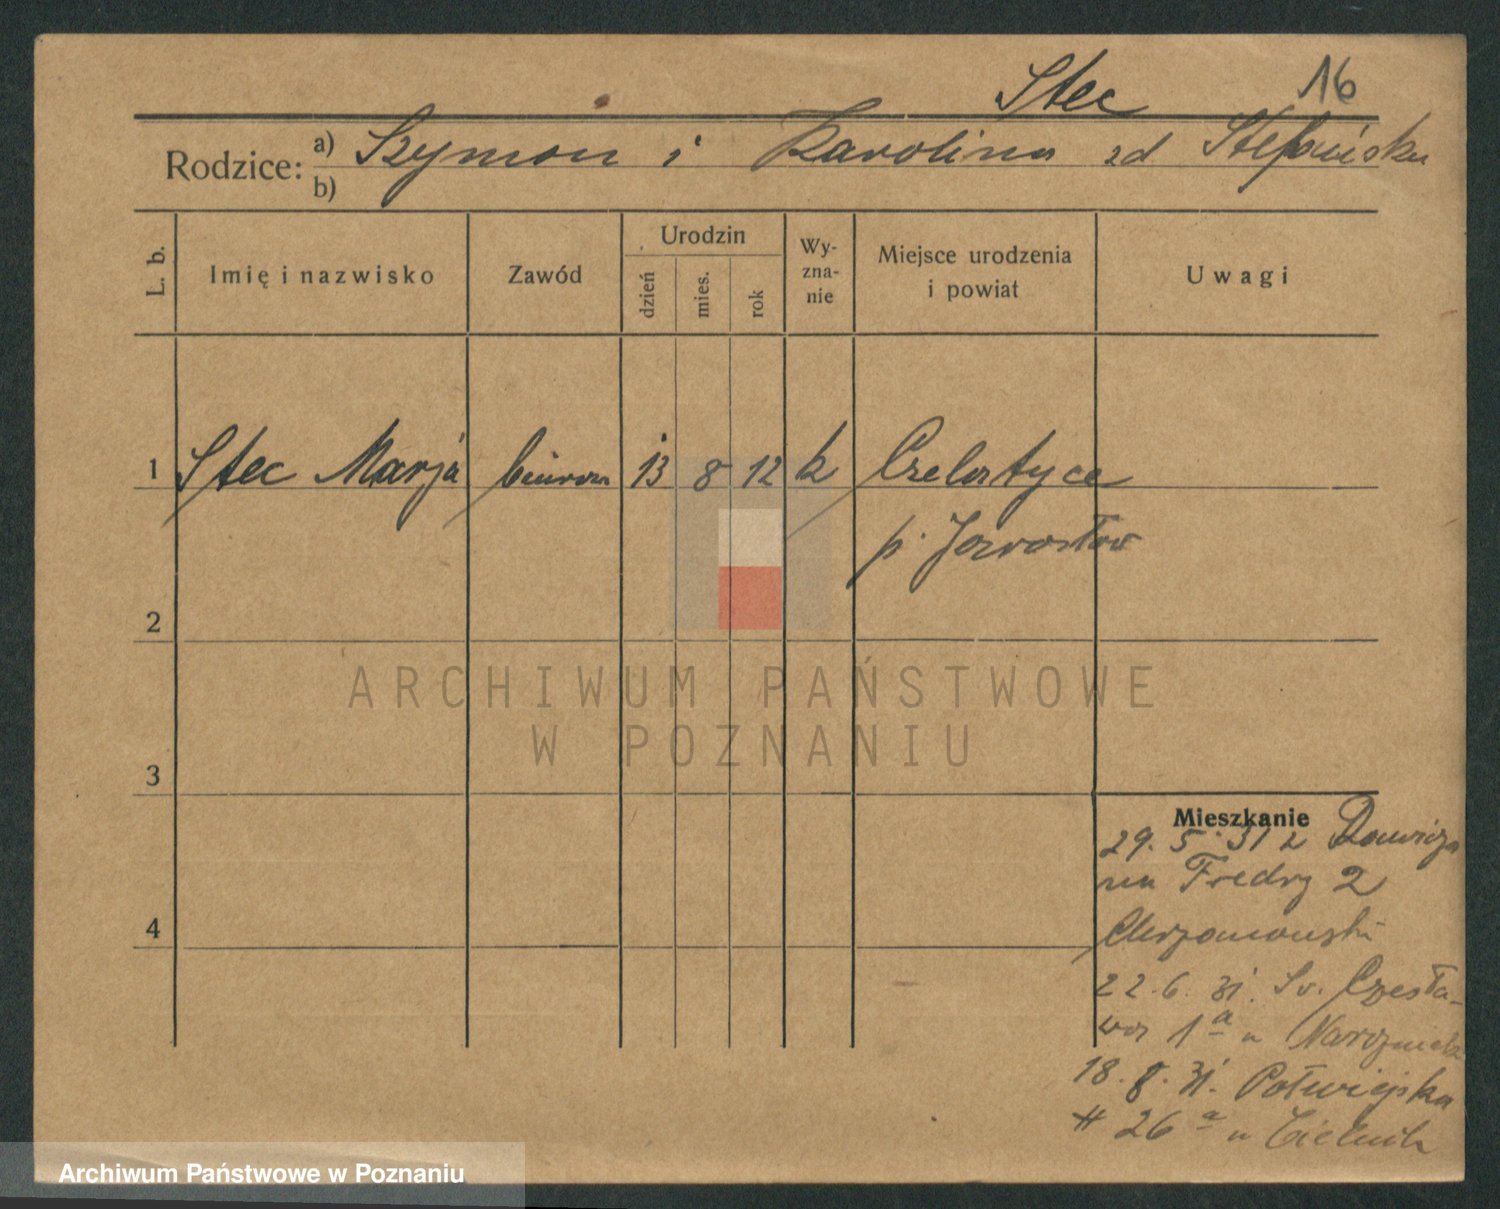 Stec 16
Rodzice: a) Szymon i Karolina zd Stefańska
b)
L. b. Imię i nazwisko Zawód Urodzin dzień mies. rok Wy-zna-nie Miejsce urodzenia i powiat Uwagi
1 Stec Marja biurow 13 8 12 k Czelatyce
p. Jarosław
2
3
4
Mieszkanie
29. 5. 31 z
na Fredry 2
Chrzanowski
22. 6. 31. Św. Czesła-
wa 1a u
18. 8. 31. Półwiejska
26a u Cielecki
ARCHIWUM PAŃSTWOWE
W POZNANIU
Archiwum Państwowe w Poznaniu